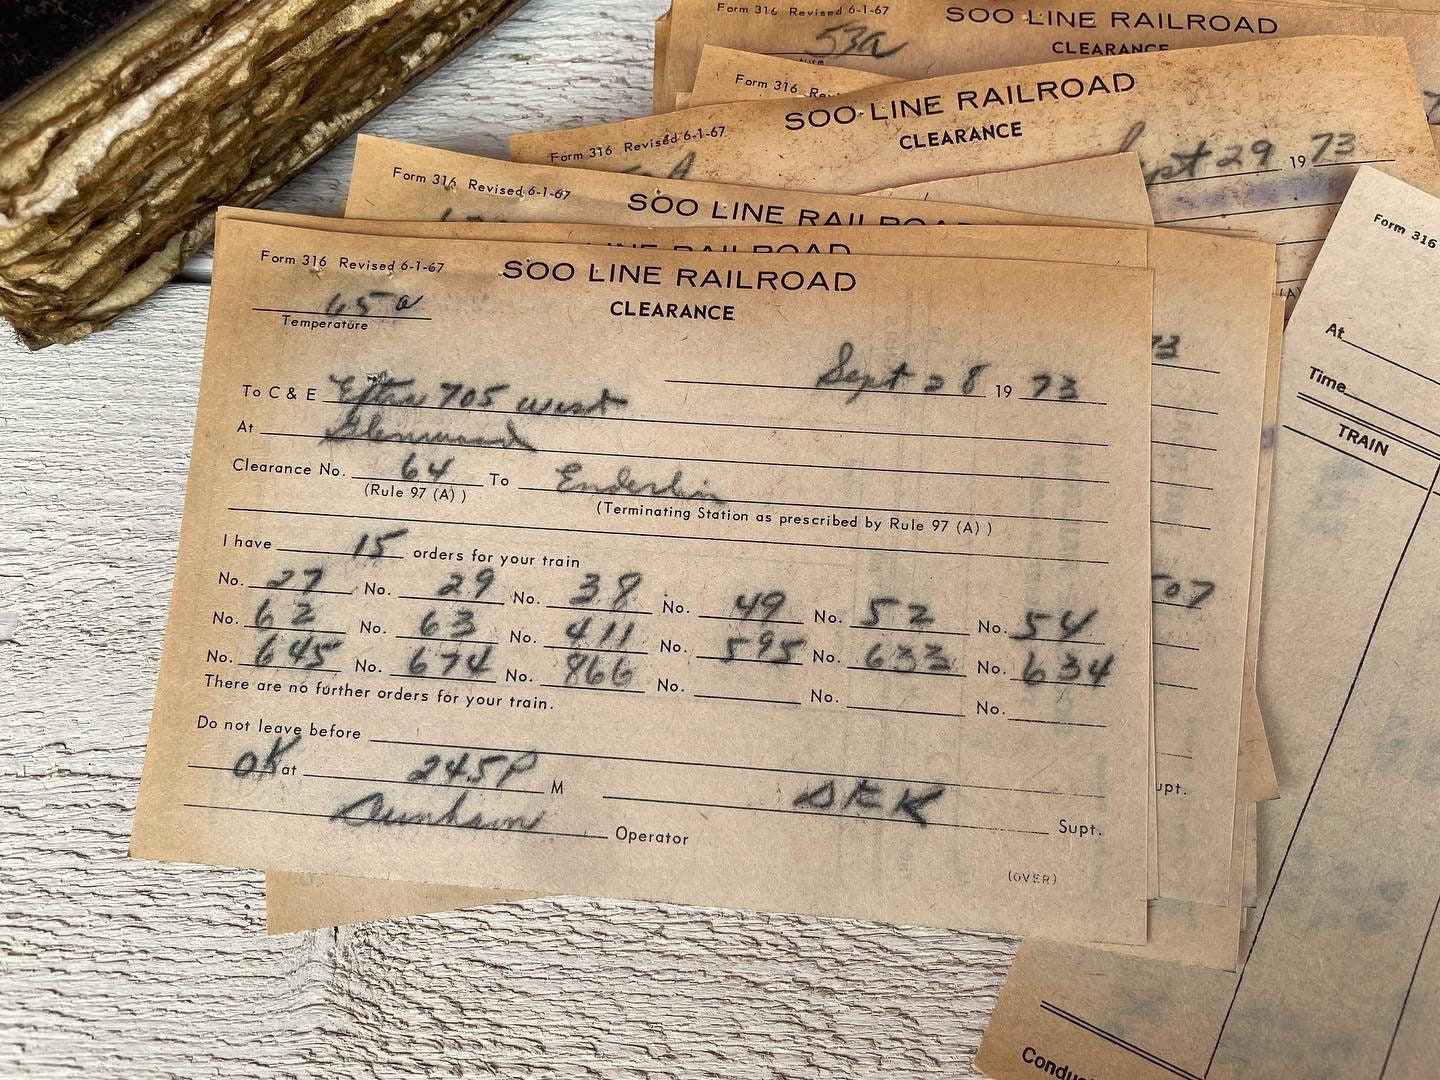 Form 316 Revised 6-1-67
SOO LINE RAILROAD
53a
CLEARANCE
Form 316
SOO LINE RAILROAD
Form 316 Revised 6-1-67
CLEARANCE
Sept 29 1973
Form 316 Revised 6-1-67
SOO LINE RAILROAD
LINE RAILROAD
Form 316 Revised 6-1-67
SOO LINE RAILROAD
CLEARANCE
65 a
Temperature
Sept 28 1973
To C & E Extra 705 west
At Glenwood
Clearance No. 64 To Enderlin
(Rule 97 (A) )
(Terminating Station as prescribed by Rule 97 (A) )
I have 15 orders for your train
No. 27 No. 29 No. 38 No. 49 No. 52 No. 54
No. 62 No. 63 No. 411 No. 595 No. 633 No. 634
No. 645 No. 674 No. 866 No. No. No.
There are no further orders for your train.
Do not leave before
OK at 245P M DEK Supt.
Operator
(OVER)
73
507
upt.
Form 316
At
Time
TRAIN
Conduc